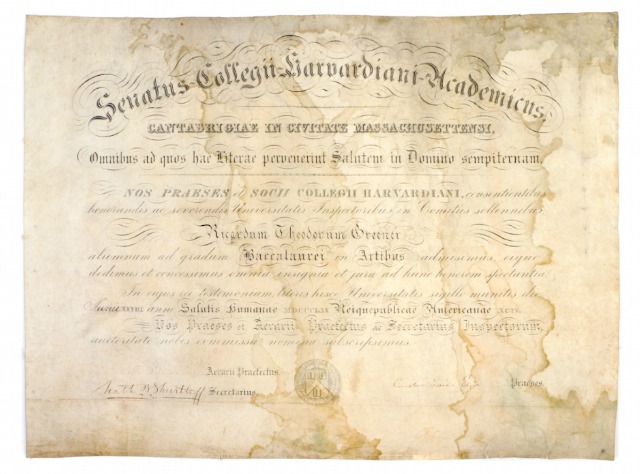 Senatus Collegii Harvardiani Academicus,
CANTABRIGIAE IN CIVITATE MASSACHUSETTENSI,
Omnibus ad quos hae Literae pervenerint Salutem in Domino sempiternam,
NOS PRAESES et SOCII COLLEGII HARVARDIANI, consentientibus
honorandis ac reverendis Universitatis Inspectoribus in Comitiis sollennibus
Ricardum Theodorum Greener
alumnum ad gradum Baccalaurei in Artibus admisimus, eique
dedimus et concessimus omnia insignia et jura ad hunc honorem spectantia
In cujus rei testimonium, literis hisce Universitatis sigillo munitis die
anno Salutis Humanae MDCCCLXX Reique publicae Americanae
Nos Praeses et Aerarii Praefectus ac Secretarius Inspectorum,
auctoritate nobis commissa nomina subscripsimus.
Aerarii Praefectus.
Secretarius. Praeses.